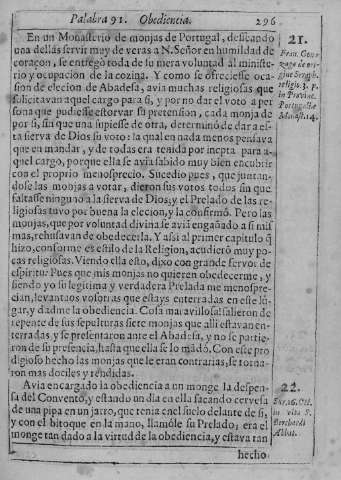 Palabra 91. Obediencia. 296
En un Monasterio de monjas de Portugal, deseando
una dellas servir muy de veras a N. Señor en humildad de
coraçon, se entregò toda de su mera voluntad al ministe-
rio y ocupacion de la cozina. Y como se ofreciesse oca-
sion de elecion de Abadesa, avia muchas religiosas que
solicitavan aquel cargo para si, y por no dar el voto a per
sona que pudiesse estorvar su pretension, cada monja de
por si, sin que una supiesse de otra, determinò de dar a es-
ta sierva de Dios su voto: la qual en nada menos pensava
que en mandar, y de todas era tenida por inepta para a-
quel cargo, porque ella se avia sabido muy bien encubrir
con el proprio menosprecio. Sucedio pues, que juntan-
dose las monjas a votar, dieron sus votos todos sin que
faltasse ninguno a la sierva de Dios; y el Prelado de las re-
ligiosas tuvo por buena la elecion, y la confirmò. Pero las
monjas, que por voluntad divina se aviã engañado a si mis
mas, rehusavan de obedecerla. Y assi al primer capitulo q̃
hizo, conforme es estilo de la Religion, acudierõ muy po-
cas religiosas. Viendo ella esto, dixo con grande fervor de
espiritu: Pues que mis monjas no quieren obedecerme, y
siendo yo su legitima y verdadera Prelada me menospre-
cian, levantaos vosotras que estays enterradas en este lu-
gar, y dadme la obediencia. Cosa maravillosa! salieron de
repente de sus sepulturas siete monjas que alli estavan en-
terradas, y se presentaron ante el Abadesa, y no se partie-
ron de su presencia, hasta que ella se lo mãdò. Con este pro
digioso hecho las monjas que le eran contrarias, se torna-
ron mas dociles y rendidas.
Avia encargado la obediencia a un monge la despen-
sa del Convento, y estando un dia en ella sacando cerveza
de una pipa en un jarro, que tenia en el suelo delante de si,
y con el bitoque en la mano, llamóle su Prelado; era el
monge tan dado a la virtud de la obediencia, y estava tan
hecho
21.
Fran. Gon-
zaga de ori-
gine Seraph.
religio. 3. p.
in Provinc.
Portugallæ
Monast. 14.
22.
Sur. 16. Oct.
in vita S.
Berchardi
Abbat.